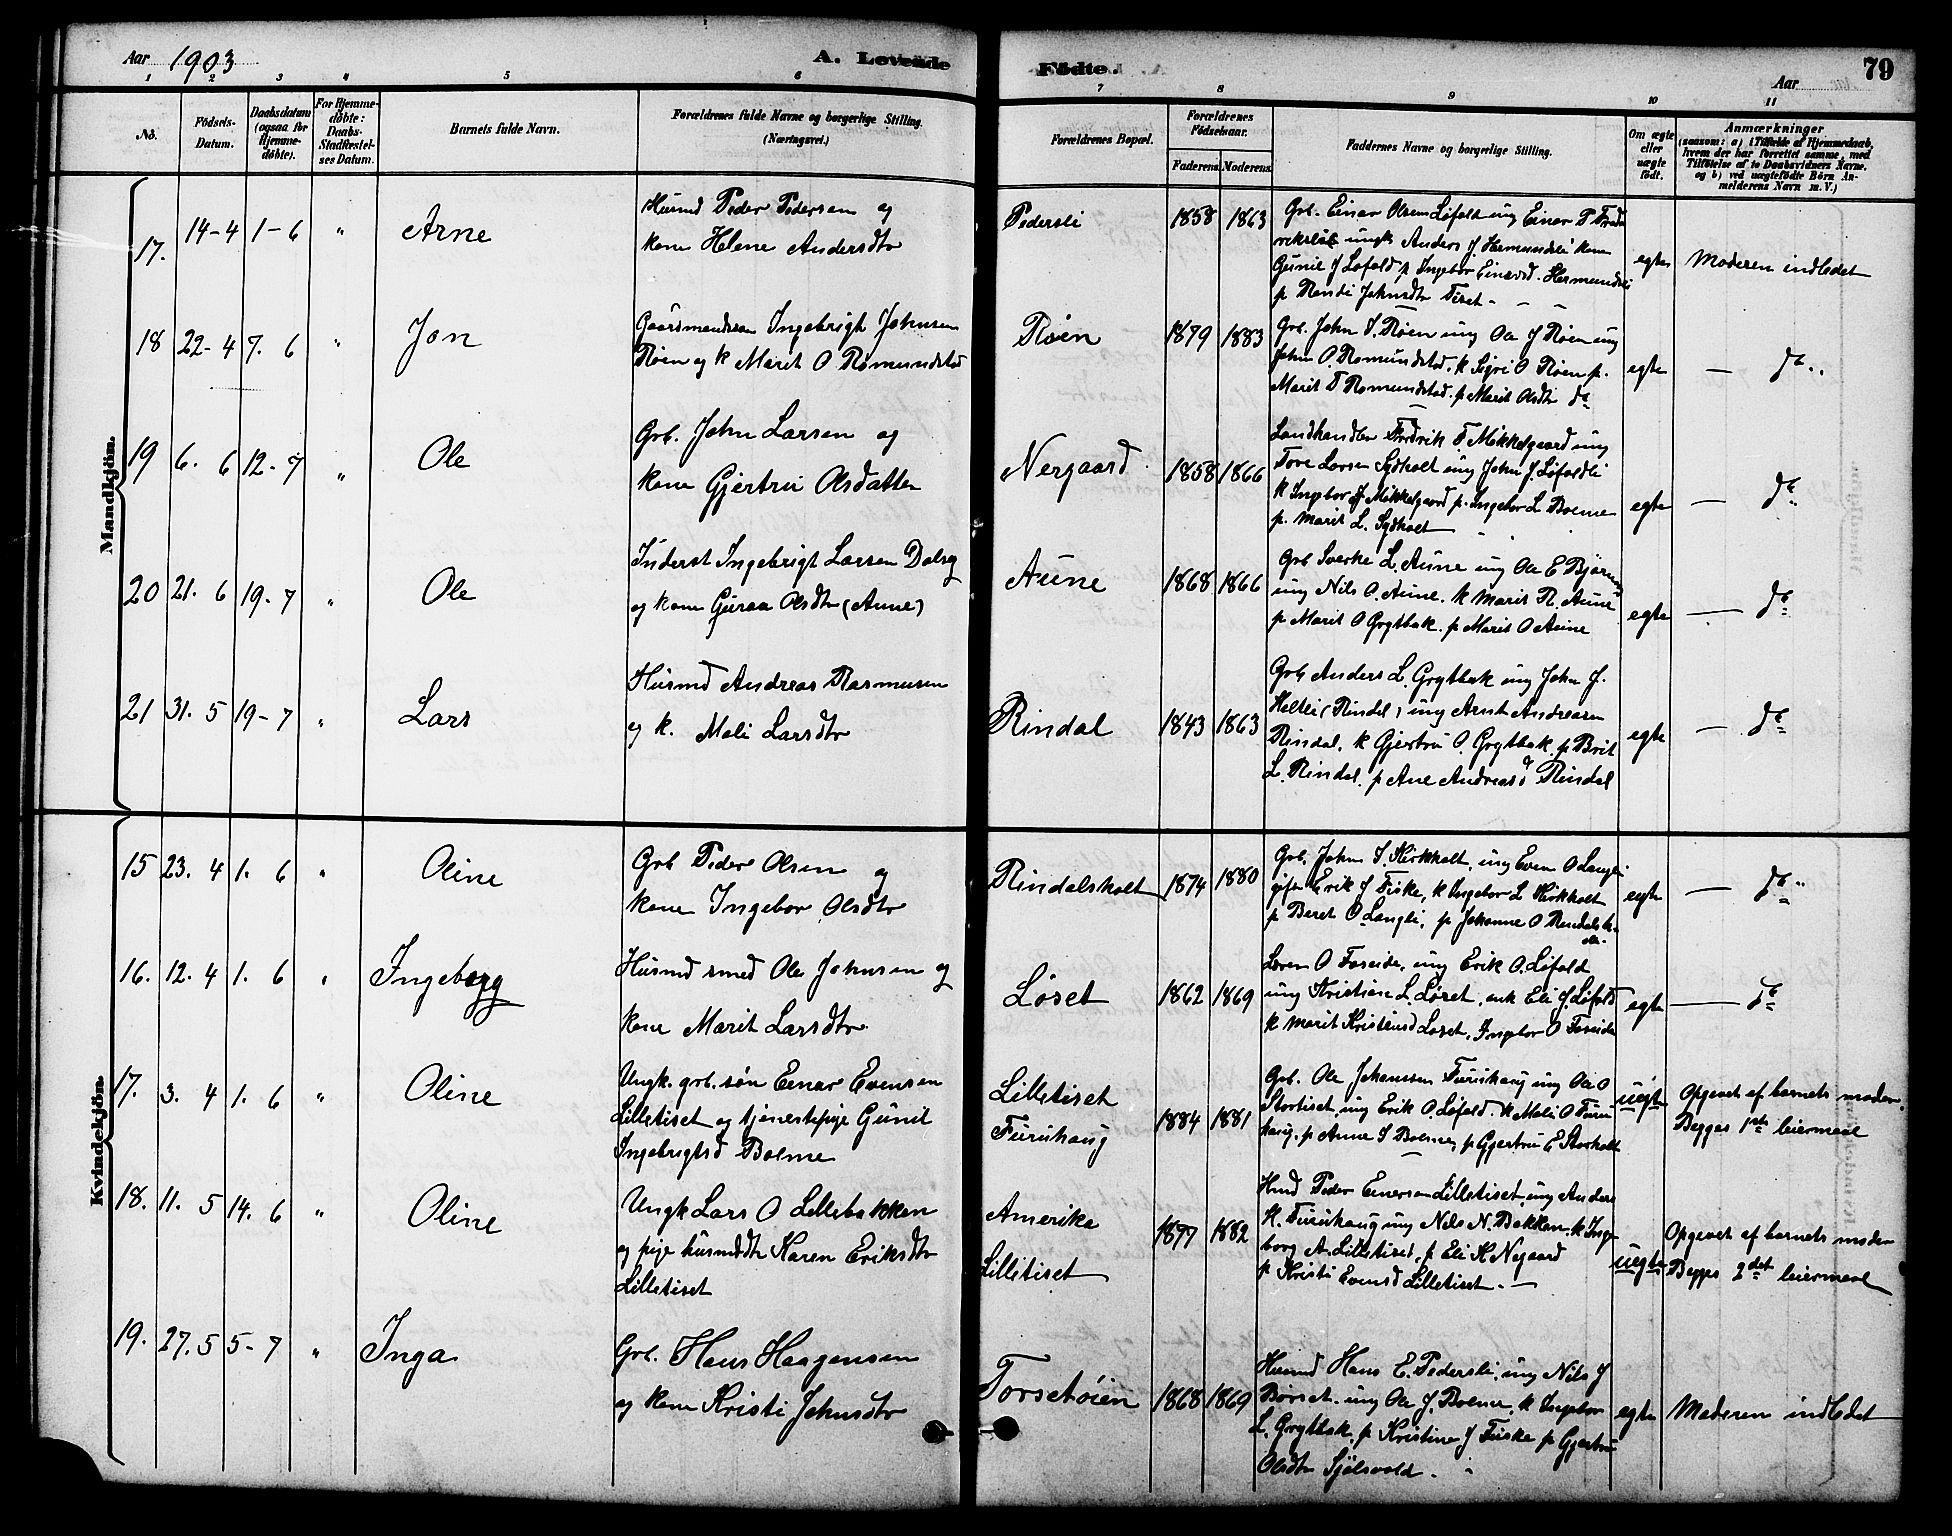 Aar 1903
A. Levende Fødte.
Aar
79
1 2 3 4 5 6 7 8 9 10 11
No.
Fødsels-Datum.
Daabsdatum (ogsaa for Hjemme-døbte).
For Hjemme-døbte: Daabs-Stadfæstel-ses Datum.
Barnets fulde Navn.
Forældrenes fulde Navne og borgerlige Stilling. (Næringsvei.)
Forældrenes Bopæl.
Forældrenes Fødselsaar.
Faderens. Moderens.
Faddernes Navne og borgerlige Stilling.
Om ægte eller uægte født.
Anmærkninger
(saasom: a) i Tilfælde af Hjemmedaab,
hvem der har forrettet samme, med
Tilføielse af to Daabsvidners Navne,
og b) ved uægtefødte Børn An-
melderens Navn m. V.)
Mandkjøn.
17. 14-4 1-6 " Arne
Husmd Peder Pedersen og
kone Helene Andersdtr
Pedersli 1858 1863
Grb. Einar Olsen Løfald ung Einar P Fred
rikslie ungk Anders J. Hermundsli kone
Gunil J Løfald p Ingebor Einarsd. Hermundsli
p Randi Johnsdtr Tiset
egte Moderen indledet
18 22-4 7. 6 " Jon
Gaardmandssøn Ingebrigt Johnsen
Røen og k Marit O Romundstad
Røen 1879 1883
Grb. John I. Røen ung Ole J Røen ung
John O. Romundstad. k Sigri O Røen p.
Marit T Romundstad. p Marit Olsdtr do
egte — do
19 6. 6 12-7 " Ole
Grb. John Larsen og
kone Gjertru Olsdatter
Nergaard 1858 1866
Landhandler Fredrik T Mikkelgaard ung
Tore Larsen Sydholt ung John J. Løfaldli
k Ingebor J Mikkelgaard p. Ingebor L Bolme
p. Marit L. Sydholt
egte — do
20 21. 6 19-7 " Ole
Inderst Ingebrigt Larsen Dalseg
og kone Guraa Olsdtr (Aune)
Aune 1868 1866
Grb Sverke L. Aune ung Ole E Bjørnaas
ung Nils O. Aune. k Marit R. Aune
p Marit O Grytbak. p Marit O Aune
egte — do
21 31. 5 19-7 " Lars
Husmd Andreas Rasmusen
og k. Mali Larsdtr
Rindal 1843 1863
Grb Anders L. Grytbak ung John J.
Heltli (Rindal) ung Arnt Andreasen
Rindal. k Gjertru O. Grytbak. p Brit
L. Rindal. p Ane Andreasd Rindal
egte — do
Kvindekjøn.
15 23. 4 1. 6 " Oline
Grb Peder Olsen og
kone Ingebor Olsdtr
Rindalsholt 1874 1880
Grb. John I. Kirkholt, ung Even O Langli
gift Erik J Fiske, k Ingebor L Kirkholt
p Beret O Langli, p Johanne O Rindalsh-
olt
egte — do
16. 12. 4 1. 6 " Ingeborg
Husmd smed Ole Johnsen og
kone Marit Larsdtr
Løset 1862 1869
Loren O Foseide, ung Erik O. Løfald
ung Kristian L. Løset, enk Eli J. Løfald
k Marit Kristensd Løset, Ingebor O Foseide
egte — do
17. 3. 4 1. 6 " Oline
Ungk. grb. søn Einar Evensen
Lilletiset og tjenestepige Gunil
Ingebrigtsd Bolme
Lilletiset
Furuhaug 1884 1881
Grb. Ole Johansen Furuhaug ung Ole O
Stortiset, ung Erik O. Løfald. k Mali O Furu
haug. p Anne I Bolme, p Gjertru E Storholt
uegte
Opgivet af barnets moder.
Begges 1ste leiermaal
18. 11. 5 14. 6 " Oline
Ungk Lars O Lillebakken
og pige husmdtr Karen Eriksdtr
Lilletiset
Amerika
Lilletiset 1877 1882
Hmd Peder Einarsen Lilletiset, ung Anders
K. Furuhaug ung Nils N. Bakken. k Inge
borg A. Lilletiset, p Eli K Negaard
p Kristi Evensd Lilletiset. —
uegte
Opgivet af barnets moder
Begges 2det leiermaal
19. 27. 5 5-7 " Inga
Grb. Hans Haagensen
og kone Kristi Johnsdtr
Torsetøien 1868 1869
Husmd Hans E. Pedersli, ung Nils J
Børset. ung Ole J Bolme, k Ingebor
L. Grytbak, p Kristine J Fiske p Gjertru
Olsdtr Sjølsvold.
egte Moderen indledet